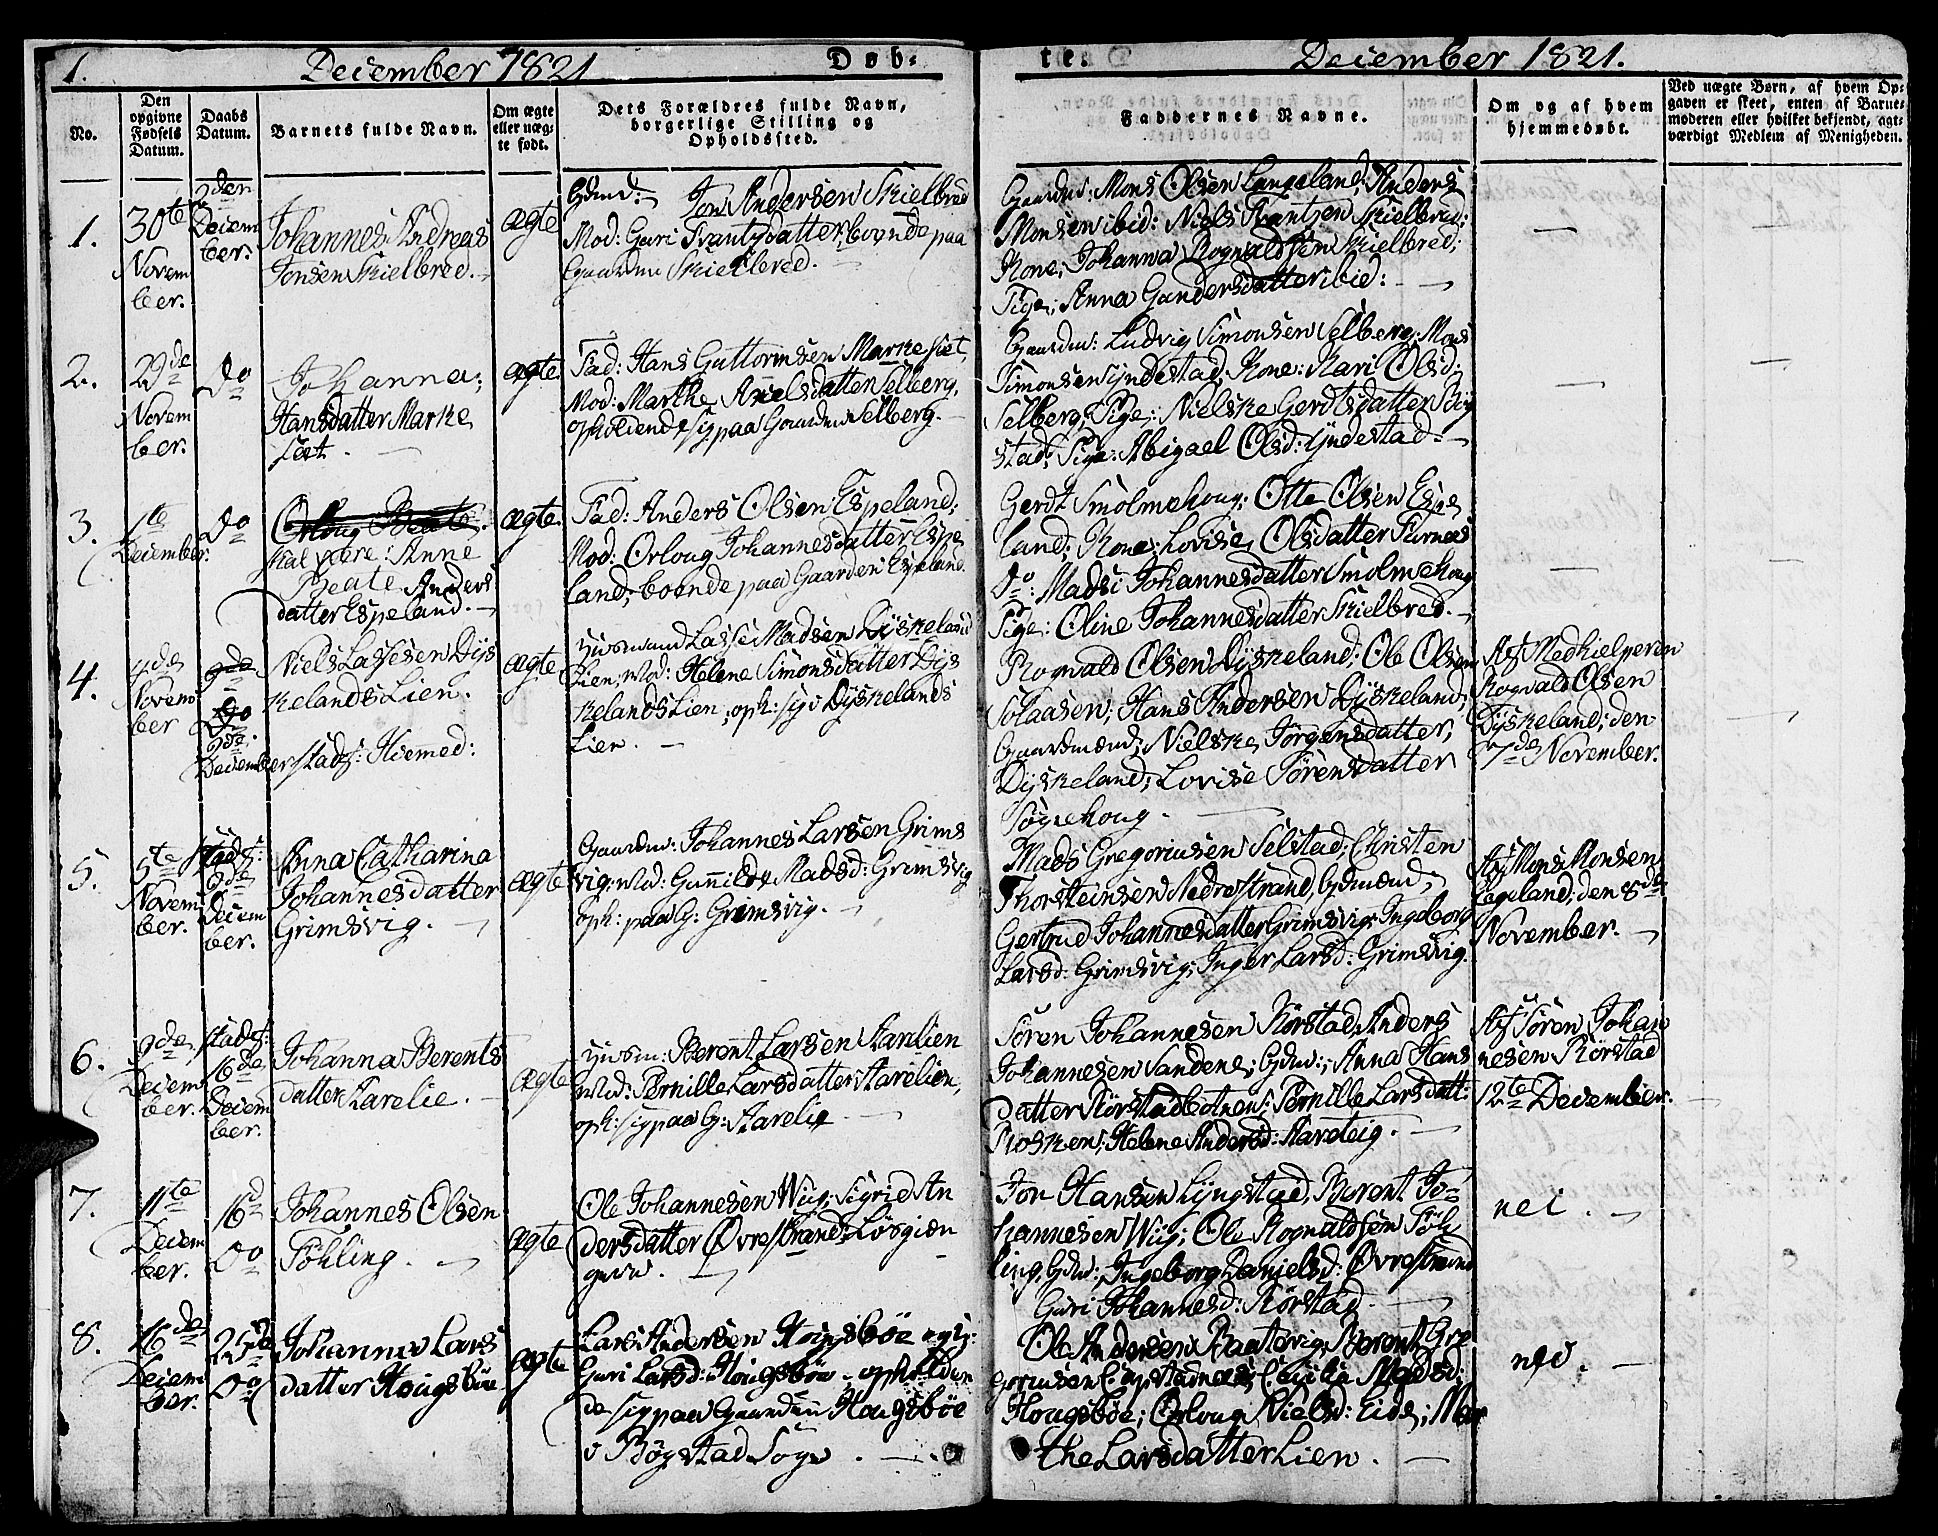 1. December 1821 Døb-
te. December 1821.
No.
Den opgivne Fødsels Datum.
Daabs Datum.
Barnets fulde Navn.
Om ægte eller uæg-te født.
Dets Forældres fulde Navn, borgerlige Stilling og Opholdssted.
Faddernes Navne.
Om og af hvem hjemmedøbt.
Ved uægte Børn, af hvem Op-
gaven er skeet, enten af Barne-
moderen eller hvilket bekjendt, agt-
værdigt Medlem af Menigheden.
1.
30te
Novem
ber.
2den
Decem
ber.
Johannes Andreas
Jonsen Skielbred.
ægte
Gdmd: Jon Andersen Skielbred
Mod: Guri Frantzdatter, boende paa
Gaarden Skielbred.
Gaardm: Mons Olsen Langeland; Anders
Monsen ibid: Niels Frantzen Skielbred;
Kone, Johanna Rognaldsen Skielbred;
Pige; Anna Gundersdatter ibid:
2.
29de
Novem
ber.
do
Johanna;
Hansdatter Marke
sæt.
ægte
Fad: Hans Guttormsen Markesæt,
Mod: Marthe Axelsdatter Selberg,
opholdende sig paa Gaarden Selberg.
Gaardm: Ludvig Simonsen Selberg; Mons
Simonsen Yndestad, Kone: Kari Olsd:
Selberg; Pige; Nielske Gerdtsdatter Byg
stad; Pige: Abigael Olsd: Yndestad.
3.
1te
December:
do
Orloug Beate.
skal være: Anne
Beate Anders
datter Espeland.
ægte
Fad: Anders Olsen Espeland;
Mod: Orloug Johannesdatter Espe
land; boende paa Gaarden Espeland.
Gerdt Smolmehoug; Otte Olsen Espe
land; Kone: Lovise Olsdatter Furnees
do: Madsi Johannesdatter Smolmehoug
Pige: Oline Johannesdatter Skielbred.
4.
Novem
ber
9de
do
9de
December stadf: Hiemed:
Niels Lassesen Dys
kelands Lien.
ægte
Huusmand Lasse Madsen Dyskeland
Lien; Mod: Helene Simonsdatter Dys
kelands Lien, oph: sig i Dyskelands
Lien.
Rognald Olsen Dyskeland; Ole Olsen
Solaasen; Hans Andersen Dyskeland;
Gaardmænd; Nielske Jørgensdatter,
Dyskeland; Lovise Sørensdatter
Søgnehoug.
Af Medhielperen
Rognald Olsen
Dyskeland; den
7de November.
5.
5te
Novem
ber.
stadf:
9de
Decem
ber.
Anna Catharina
Johannesdatter
Grimsvig.
ægte
Gaardm: Johannes Larsen Grims
vig; Mod: Gunnild Madsd: Grimsvig
oph: paa G: Grimsvig.
Mads Gregoriusen Selstad; Christen
Thorsteinsen Nedrestrand, Gdmænd;
Gertrud Johannesdatter Grimsvig; Ingeborg
Larsd: Grimsvig; Inger Larsd: Grimsvig.
Af Mons Monsen
den 8de
November.
6.
9de
Decem
ber.
stadf:
16de
Decem
ber.
Johanna Berents
datter Aarelie.
ægte
Huusm: Berent Larsen Aarelien
Mod: Pernille Larsdatter Aarelien,
oph: sig paa G: Aarelie
Søren Johannesen Rørstad; Anders
Johannesen Sandene; Gdm:; Anna Hans
datter Rørstadbotnen; Pernille Larsdatt:
Helene Andersd: Aareteig.
Af Søren Johan
nesen Rørstad
12te December.
7.
11te
Decem
ber.
16d
do
Johannes Olsen
Føhling.
ægte
Ole Johannesen Wiig; Sigrid An
dersdatter Øvrestrand; Løsgiæn
gere.
Jon Hansen Lyngstad, Berent Jo-
hannesen Wiig; Ole Rognaldsen Føh
ling, Gdm: Ingeborg Danielsd: Øvrestrand
Guri Johannesd: Rørstad.
nei.
8.
16de
Decem
ber.
25de
do
Johanna Lars
datter Hougsbøe
ægte
Lars Andersen Hougsbøe og
Guri Larsd: Hougsbøe opholden
de sig paa Gaarden Hougsbøe
i Bygstad Sogn.
Ole Andersen Berent Gre
goriusen Cecilia Madsd:
Hougsbøe; Orloug Nielsd: Eide; Mar
the Larsdatter Lien.
nei.